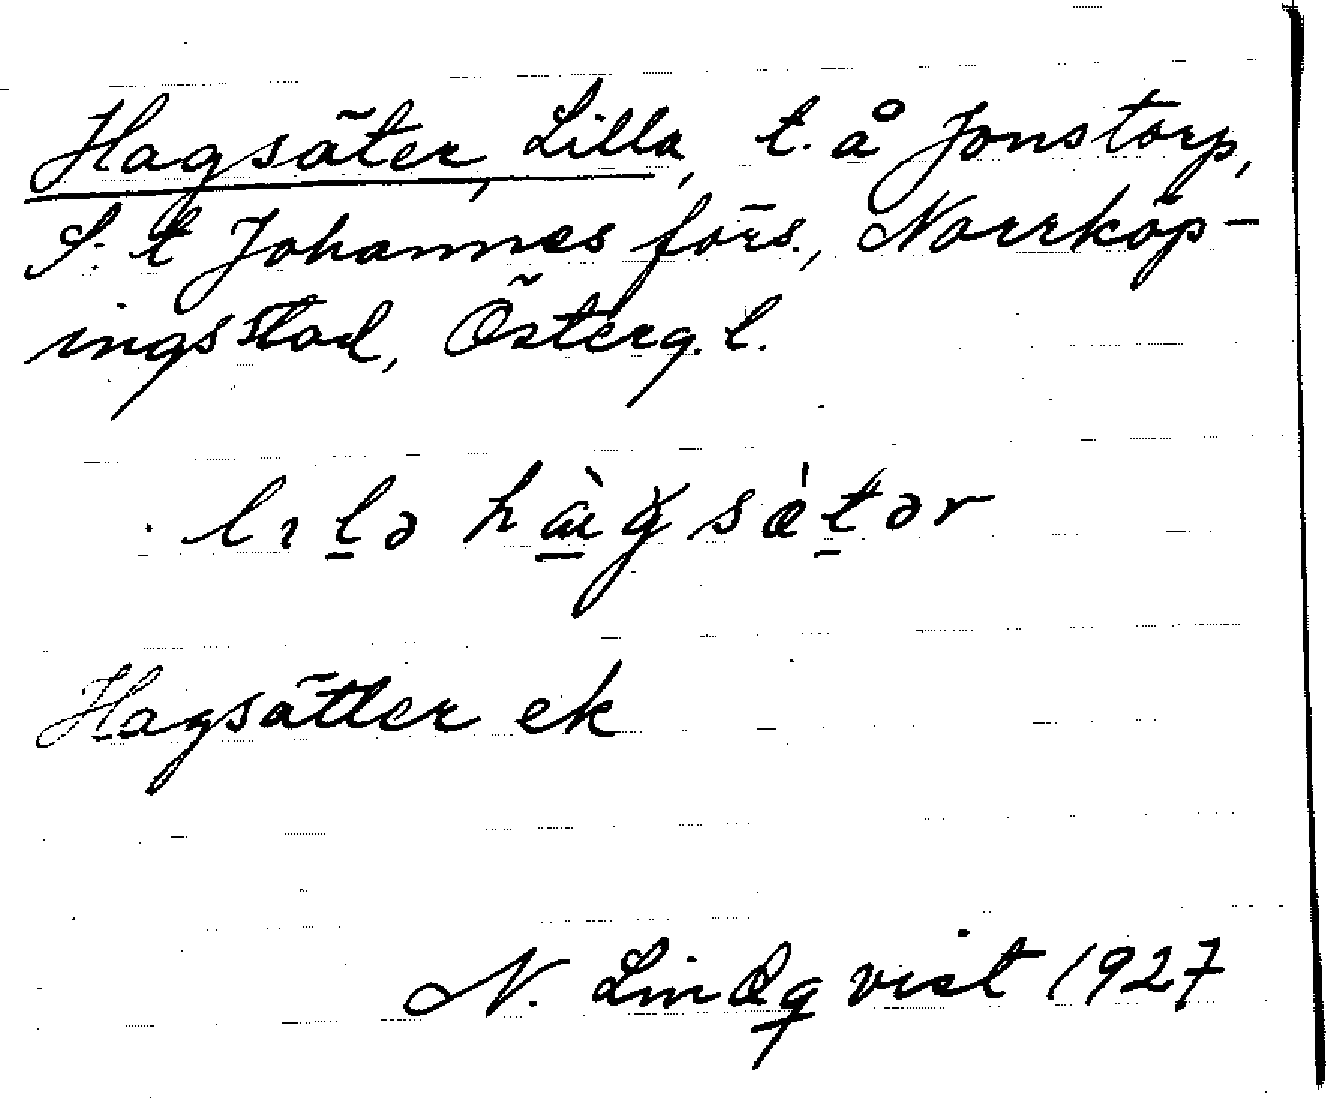 Hagsäter, Lilla, t. å Jonstorp,
S:t Johannes förs., Norrköp-
ingsstad, Österg.l.
Hagsätter ek
N. Lindqvist 1927